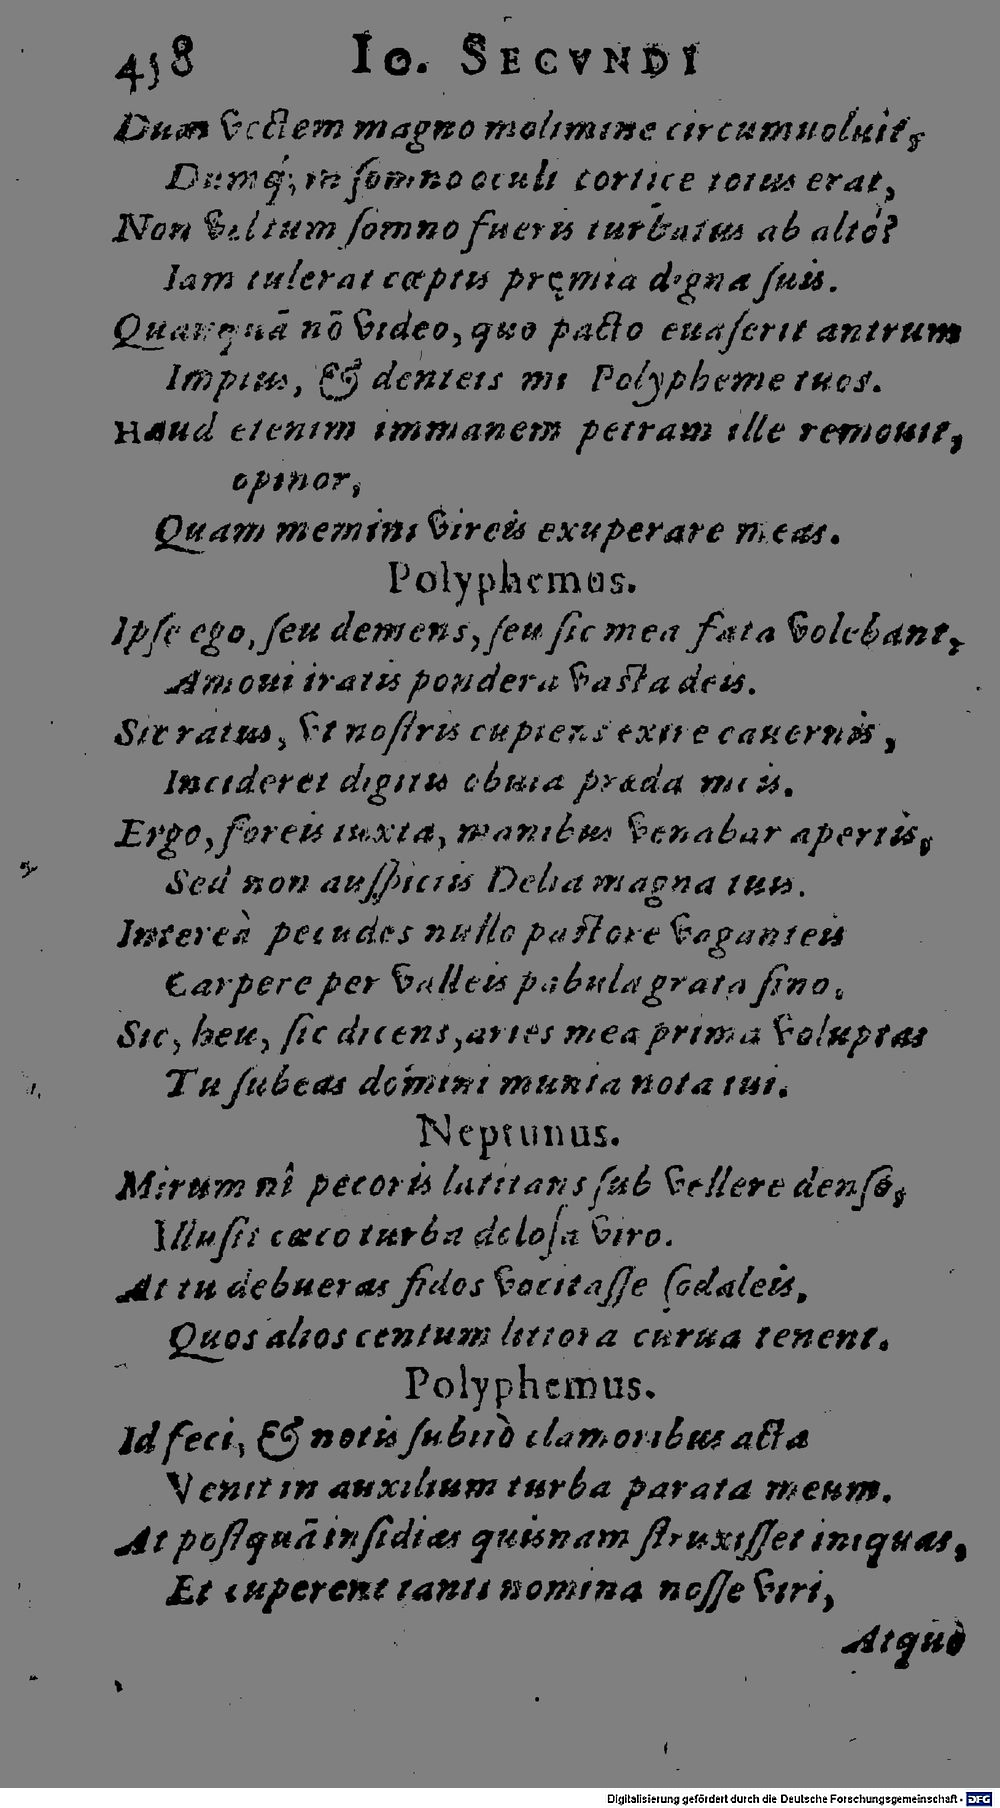 458 Io. SECVNDI
Dum vectem magno molimine circumuoluit,
Dumq́; in somno oculi cortice totus erat,
Non vultum somno fueris turbatus ab alto?
Iam tulerat cœptis pręmia digna suis.
Quanquā nō video, quo pacto euaserit antrum
Impius, & denteis mi Polypheme tuos.
Haud etenim immanem petram ille remouit,
opinor,
Quam memini vireis exuperare meas.
Polyphemus.
Ipse ego, seu demens, seu sic mea fata volebant,
Amoui iratis pondera vasta deis.
Sic ratus, vt nostris cupiens exire cauernis,
Incideret digitis obuia præda meis.
Ergo, foreis iuxta, manibus venabar apertis,
Sed non auspiciis Delia magna tuis.
Intereà pecudes nullo pastore vaganteis
Carpere per valleis pabula grata sino.
Sic, heu, sic dicens, aries mea prima voluptas
Tu subeas domini munia nota tui.
Neptunus.
Mirum nî pecoris latitans sub vellere denso,
Illusit cæco turba dolosa viro.
At tu debueras fidos vocitasse sodaleis,
Quos alios centum littora curua tenent.
Polyphemus.
Id feci, & notis subitò clamoribus acta
Venit in auxilium turba parata meum.
At postquā insidias quisnam struxisset iniquas,
Et cuperent tanti nomina nosse viri,
Atquè
Digitalisierung gefördert durch die Deutsche Forschungsgemeinschaft - DFG